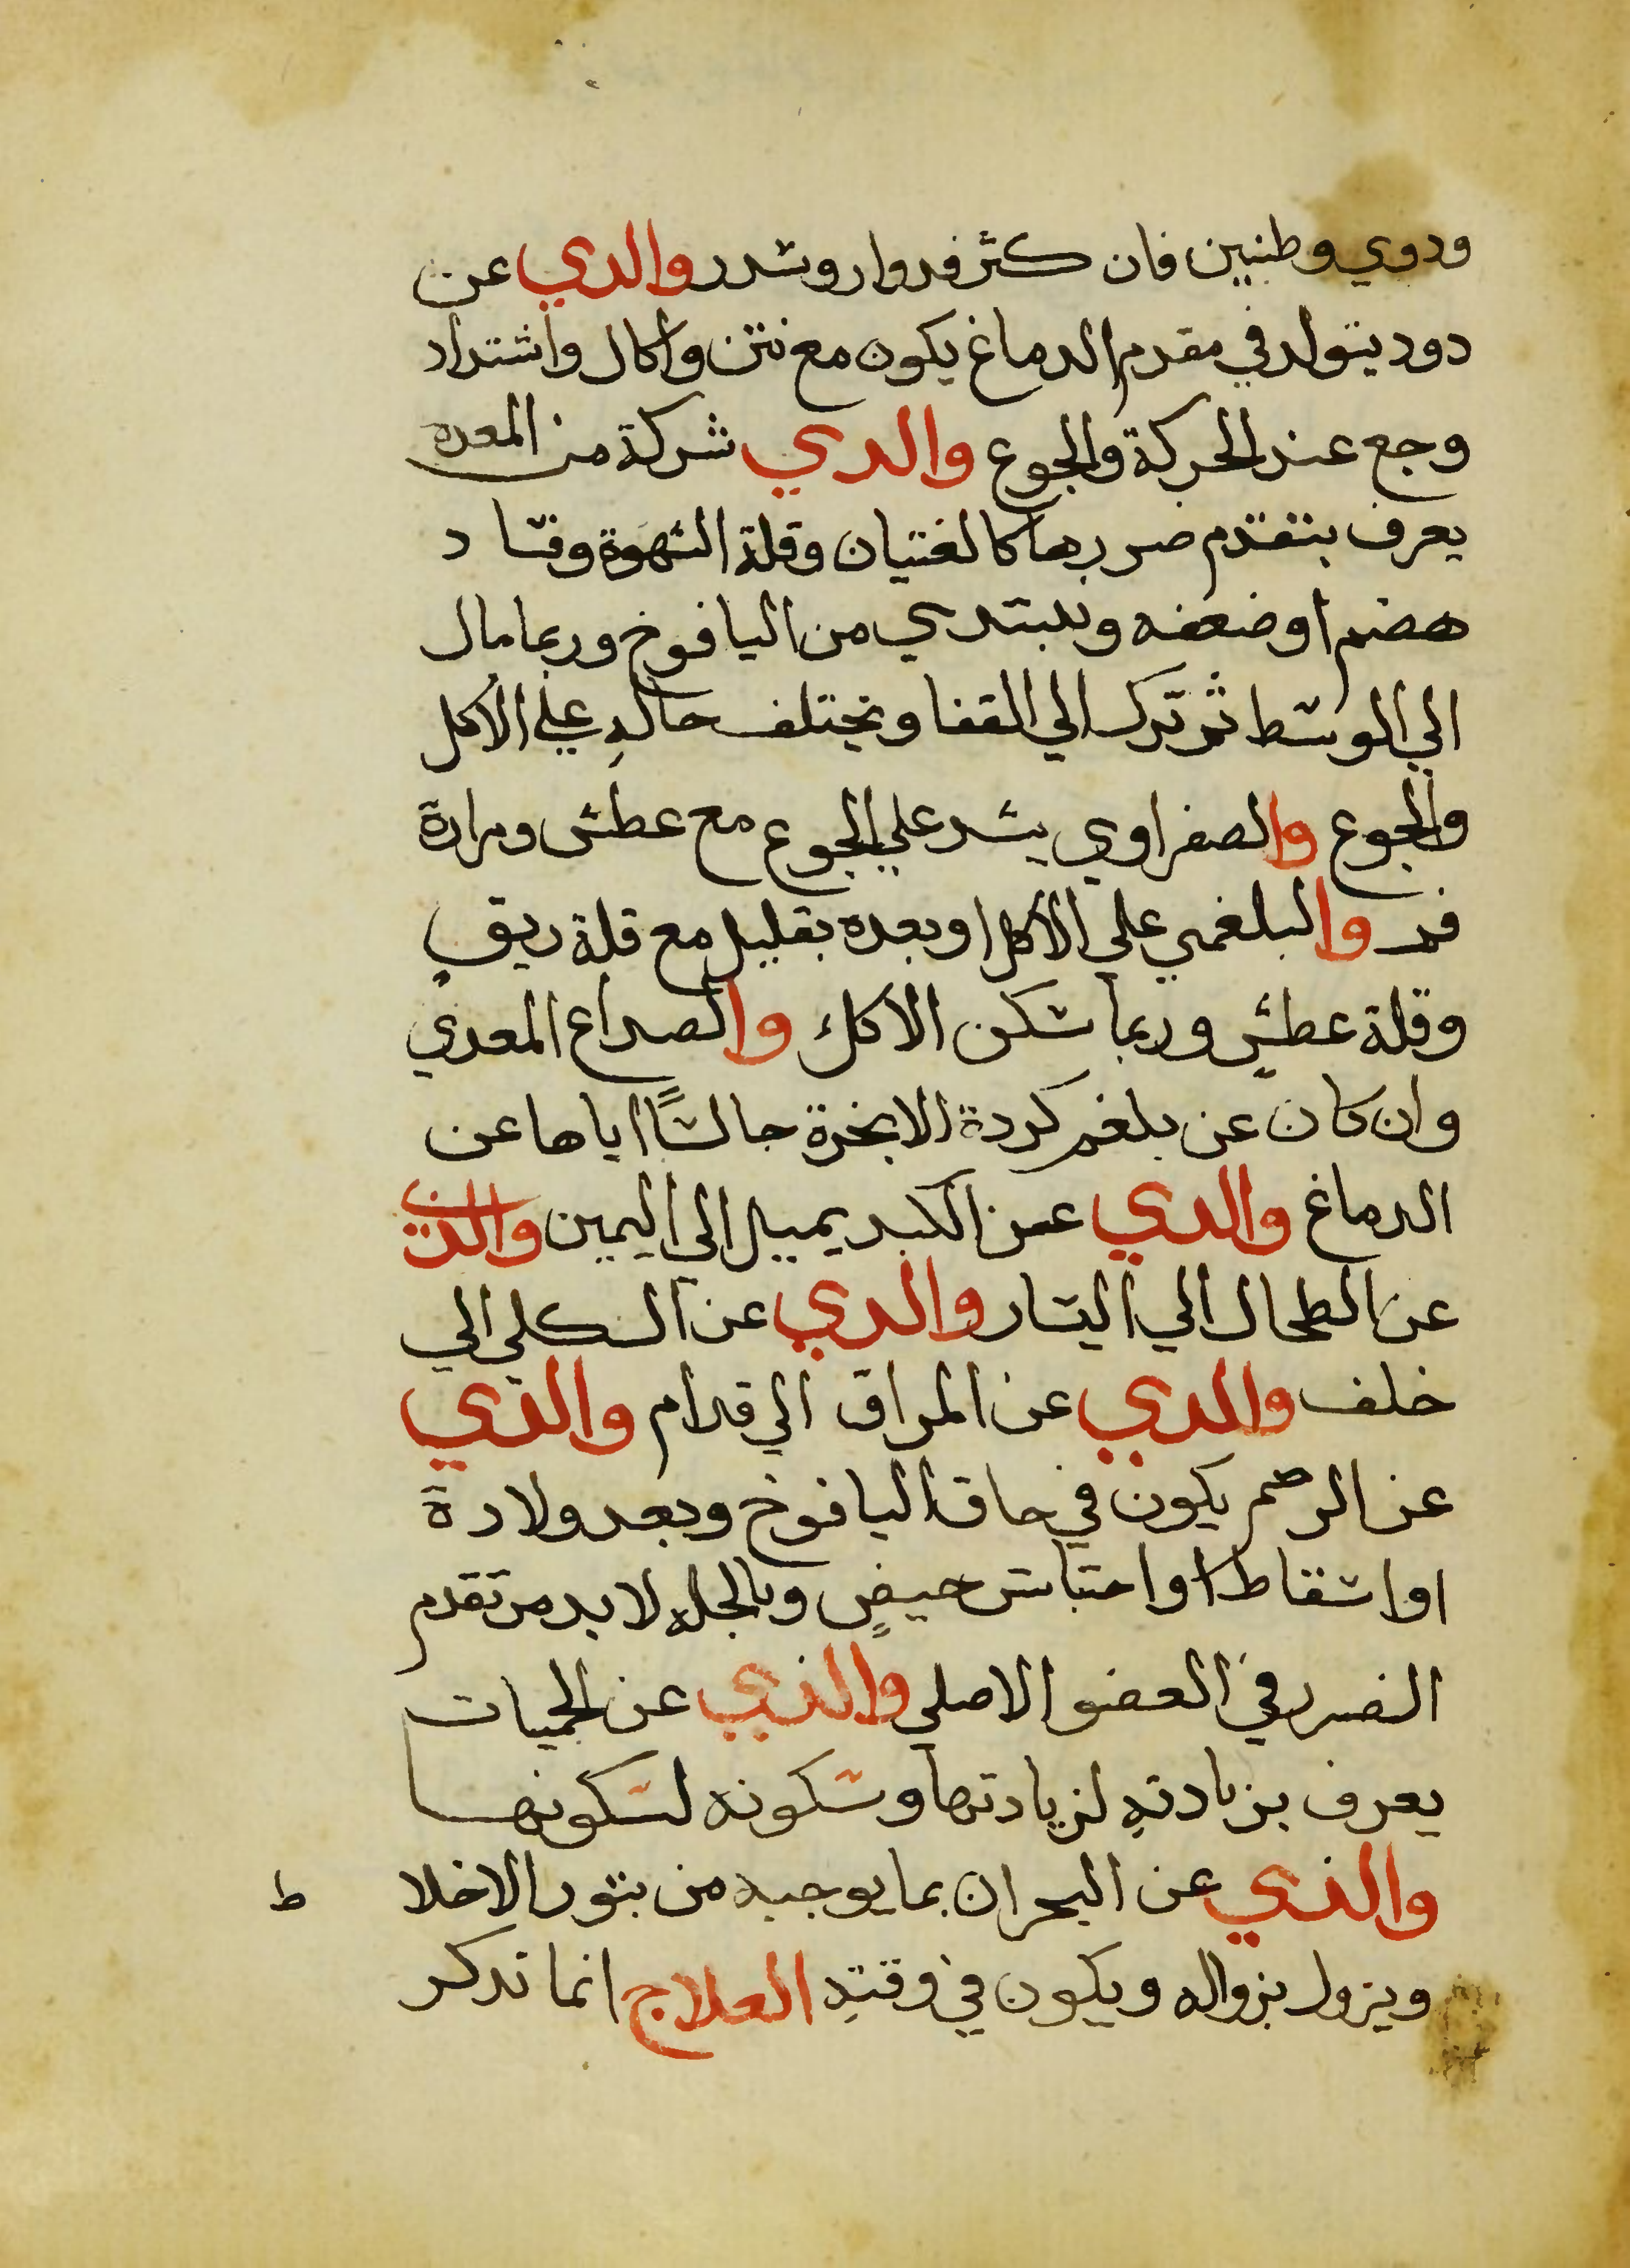 ودوي وطنين فان كثر فدوار وسدر والدي عن
دود يتولد في مقدم الدماغ يكون مع نتن واكال واشتداد
وجع عند الحركة والجوع والدي شركة من المعده
يعرف بتقدم ضررها كالغثيان وقلة الشهوة وفساد
هضم او ضعفه ويبتدي من اليافوخ وربما مال
الي الوسط ثم ترك الي القفا ويختلف حاله علي الاكل
والجوع والصفراوي يشد علي الجوع مع عطش ومرارة
فم والبلغمي علي الاكل او بعده بقليل مع قلة ريق
وقلة عطش وربما سكن الاكل والصداع المعدي
وان كان عن بلغم كردة الابخرة حابسًا اياها عن
الدماغ والدي عن الكبد يميل الي اليمين والذي
عن الطحال الي اليسار والدي عن الكلي الي
خلف والدي عن المراق الي قدام والذي
عن الرحم يكون في حاق اليافوخ وبعد ولادة
او اسقاط او احتباس حيضٍ وبالجمله لا بد من تقدم
الضرر في العضو الاصلي والذي عن الحميات
يعرف بزيادته لزيادتها وسكونه لسكونها
والذي عن البحران بما يوجبه من بثور الاخلا ط
ويزول بزواله ويكون في وقته العلاج انما تدكر